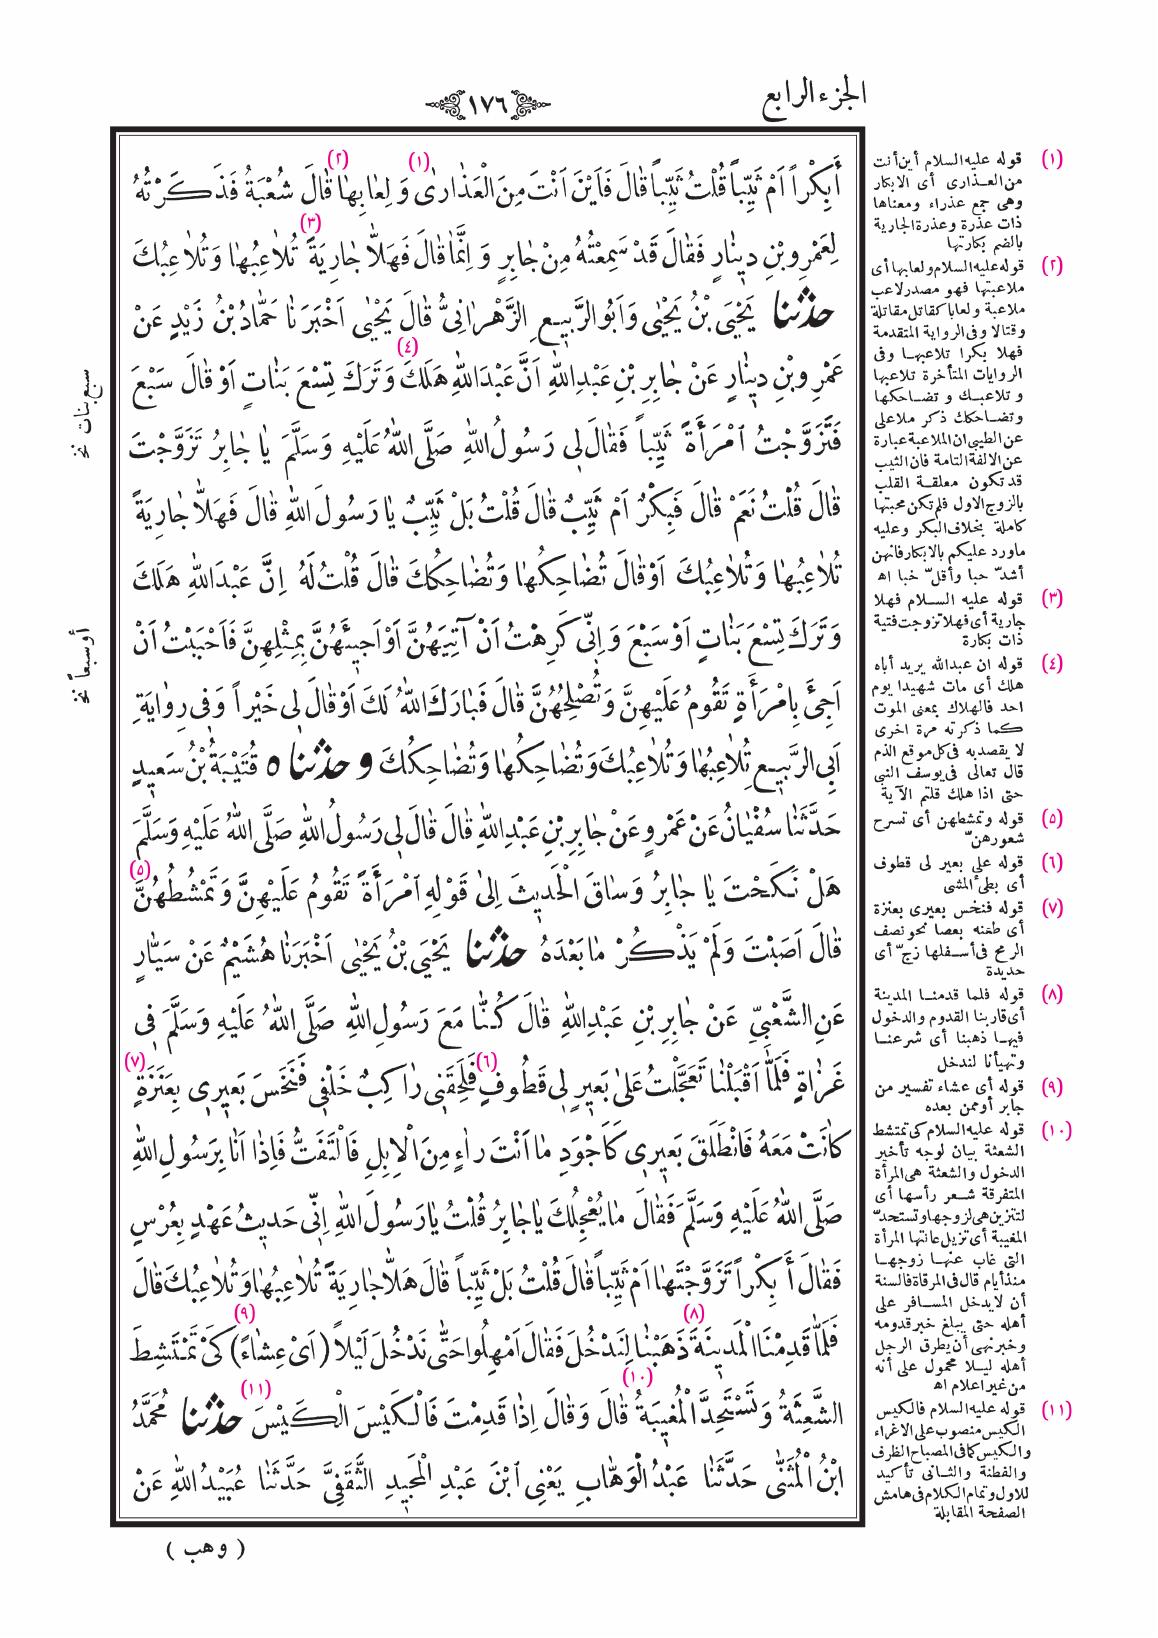 الجزء الرابع
١٧٦
أَبِكْراً اَمْ ثَيِّباً قُلْتُ ثَيِّباً قَالَ فَاَيْنَ اَنْتَ مِنَ الْعَذَارٰى (١) وَ لِعَابِهَا (٢) قَالَ شُعْبَةُ فَذَكَرْتُهُ
لِعَمْرِو بْنِ دِينَارٍ فَقَالَ قَدْ سَمِعْتُهُ مِنْ جَابِرٍ وَ اِنَّمَا قَالَ فَهَلاَّ جَارِيَةً (٣) تُلاَعِبُهَا وَتُلاَعِبُكَ
حدثنا يَحْيَى بْنُ يَحْيٰى وَاَبُو الرَّبِيعِ الزَّهْرَانِىُّ قَالَ يَحْيٰى اَخْبَرَنَا حَمَّادُ بْنُ زَيْدٍ عَنْ
عَمْرِو بْنِ دِينَارٍ عَنْ جَابِرِ بْنِ عَبْدِ اللّٰهِ اَنَّ عَبْدَ اللّٰهِ هَلَكَ (٤) وَتَرَكَ تِسْعَ بَنَاتٍ اَوْ قَالَ سَبْعَ
فَتَزَوَّجْتُ امْرَأَةً ثَيِّباً فَقَالَ لِى رَسُولُ اللّٰهِ صَلَّى اللّٰهُ عَلَيْهِ وَسَلَّمَ يَا جَابِرُ تَزَوَّجْتَ
قَالَ قُلْتُ نَعَمْ قَالَ فَبِكْرٌ اَمْ ثَيِّبٌ قَالَ قُلْتُ بَلْ ثَيِّبٌ يَا رَسُولَ اللّٰهِ قَالَ فَهَلاَّ جَارِيَةً
تُلاَعِبُهَا وَتُلاَعِبُكَ اَوْ قَالَ تُضَاحِكُهَا وَتُضَاحِكُكَ قَالَ قُلْتُ لَهُ اِنَّ عَبْدَ اللّٰهِ هَلَكَ
وَتَرَكَ تِسْعَ بَنَاتٍ اَوْ سَبْعَ وَ اِنِّى كَرِهْتُ اَنْ آتِيَهُنَّ اَوْ اَجِيئَهُنَّ بِمِثْلِهِنَّ فَاَحْبَبْتُ اَنْ
اَجِىءَ بِامْرَأَةٍ تَقُومُ عَلَيْهِنَّ وَتُصْلِحُهُنَّ قَالَ فَبَارَكَ اللّٰهُ لَكَ اَوْ قَالَ لِى خَيْراً وَفِى رِوَايَةِ
اَبِى الرَّبِيعِ تُلاَعِبُهَا وَتُلاَعِبُكَ وَتُضَاحِكُهَا وَتُضَاحِكُكَ و حدثنا ٥ قُتَيْبَةُ بْنُ سَعِيدٍ
حَدَّثَنَا سُفْيَانُ عَنْ عَمْرٍو عَنْ جَابِرِ بْنِ عَبْدِ اللّٰهِ قَالَ قَالَ لِى رَسُولُ اللّٰهِ صَلَّى اللّٰهُ عَلَيْهِ وَسَلَّمَ
هَلْ نَكَحْتَ يَا جَابِرُ وَسَاقَ الْحَدِيثَ اِلىٰ قَوْلِهِ امْرَأَةً تَقُومُ عَلَيْهِنَّ وَتَمْشُطُهُنَّ (٥)
قَالَ اَصَبْتَ وَلَمْ يَذْكُرْ مَا بَعْدَهُ حدثنا يَحْيَى بْنُ يَحْيٰى اَخْبَرَنَا هُشَيْمٌ عَنْ سَيَّارٍ
عَنِ الشَّعْبِىِّ عَنْ جَابِرِ بْنِ عَبْدِ اللّٰهِ قَالَ كُنَّا مَعَ رَسُولِ اللّٰهِ صَلَّى اللّٰهُ عَلَيْهِ وَسَلَّمَ فِى
غَزَاةٍ فَلَمَّا اَقْبَلْنَا تَعَجَّلْتُ عَلىٰ بَعِيرٍ لِى قَطُوفٍ (٦) فَلَحِقَنِى رَاكِبٌ خَلْفِى فَنَخَسَ بَعِيرِى بِعَنَزَةٍ (٧)
كَانَتْ مَعَهُ فَانْطَلَقَ بَعِيرِى كَاَجْوَدِ مَا اَنْتَ رَاءٍ مِنَ الْاِبِلِ فَالْتَفَتُّ فَاِذَا اَنَا بِرَسُولِ اللّٰهِ
صَلَّى اللّٰهُ عَلَيْهِ وَسَلَّمَ فَقَالَ مَا يُعْجِلُكَ يَا جَابِرُ قُلْتُ يَا رَسُولَ اللّٰهِ اِنِّى حَدِيثُ عَهْدٍ بِعُرْسٍ
فَقَالَ أَ بِكْراً تَزَوَّجْتَهَا اَمْ ثَيِّباً قَالَ قُلْتُ بَلْ ثَيِّباً قَالَ هَلاَّ جَارِيَةً تُلاَعِبُهَا وَتُلاَعِبُكَ قَالَ
فَلَمَّا قَدِمْنَا الْمَدِينَةَ (٨) ذَهَبْنَا لِنَدْخُلَ فَقَالَ اَمْهِلُوا حَتّٰى نَدْخُلَ لَيْلاً ( اَىْ عِشَاءً ) (٩) كَىْ تَمْتَشِطَ
الشَّعِثَةُ وَتَسْتَحِدَّ الْمُغِيبَةُ (١٠) قَالَ وَقَالَ اِذَا قَدِمْتَ فَالْكَيْسَ الْكَيْسَ (١١) حدثنا مُحَمَّدُ
ابْنُ الْمُثَنّٰى حَدَّثَنَا عَبْدُ الْوَهَّابِ يَعْنِى ابْنَ عَبْدِ الْمَجِيدِ الثَّقَفِىَّ حَدَّثَنَا عُبَيْدُ اللّٰهِ عَنْ
( وهب )
(١) قوله عليه السلام أين أنت
من العذارى أى الابكار
وهى جمع عذراء ومعناها
ذات عذرة وعذرة الجارية
بالضم بكارتها
(٢) قوله عليه السلام ولعابها أى
ملاعبتها فهو مصدر لاعب
ملاعبة ولعابا كقاتل مقاتلة
وقتالا وفى الرواية المتقدمة
فهلا بكرا تلاعبها وفى
الروايات المتأخرة تلاعبها
و تلاعبك و تضاحكها
وتضاحكك ذكر ملا على
عن الطيبى ان الملاعبة عبارة
عن الالفة التامة فان الثيب
قد تكون معلقة القلب
بالزوج الاول فلم تكن محبتها
كاملة بخلاف البكر وعليه
ماورد عليكم بالابكار فانهن
أشدّ حبا وأقلّ خبا اه
(٣) قوله عليه السلام فهلا
جارية أى فهلا تزوجت فتية
ذات بكارة
(٤) قوله ان عبدالله يريد أباه
هلك أى مات شهيدا يوم
احد فالهلاك بمعنى الموت
كما ذكرته مرة اخرى
لا يقصد به فى كل موقع الذم
قال تعالى فى يوسف النبى
حتى اذا هلك قلتم الآية
(٥) قوله وتمشطهن أى تسرح
شعورهنّ
(٦) قوله على بعير لى قطوف
أى بطئ المشى
(٧) قوله فنخس بعيرى بعنزة
أى طعنه بعصا نحو نصف
الرمح فى أسفلها زجّ أى
حديدة
(٨) قوله فلما قدمنا المدينة
أى قاربنا القدوم والدخول
فيها ذهبنا أى شرعنا
وتهيأنا لندخل
(٩) قوله أى عشاء تفسير من
جابر أوممن بعده
(١٠) قوله عليه السلام كى تمتشط
الشعثة بيان لوجه تأخير
الدخول والشعثة هى المرأة
المتفرقة شعر رأسها أى
لتتزين هى لزوجها وتستحدّ
المغيبة أى تزيل عانتها المرأة
التى غاب عنها زوجها
منذ أيام قال فى المرقاة فالسنة
أن لايدخل المسافر على
أهله حتى يبلغ خبر قدومه
وخبر نهى أن يطرق الرجل
أهله ليلا محمول على أنه
من غير اعلام اه
(١١) قوله عليه السلام فالكيس
الكيس منصوب على الاغراء
والكيس كما فى المصباح الظرف
والفطنة والثانى تأكيد
للاول وتمام الكلام فى هامش
الصفحة المقابلة
سبع بنات نخ
أو سبعاً نخ